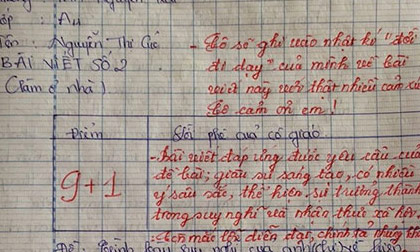 Lớp: A4
Tên: Nguyễn Thị Cúc
BÀI VIẾT SỐ 2
(Làm ở nhà)
- Cô sẽ ghi vào nhật kí "đời
đi dạy" của mình về bài
viết này với thật nhiều cảm xúc
Cô cảm ơn em!
Điểm
Lời phê của cô giáo
9+1
- Bài viết đáp ứng được yêu cầu của
đề bài; giàu sự sáng tạo, có nhiều
ý sâu sắc, thể hiện sự trưởng thành
trong suy nghĩ và nhận thức xã hội.
- Còn mắc lỗi diễn đạt, chính tả nhưng
Đề: Trình bày suy nghĩ của anh (chị) về